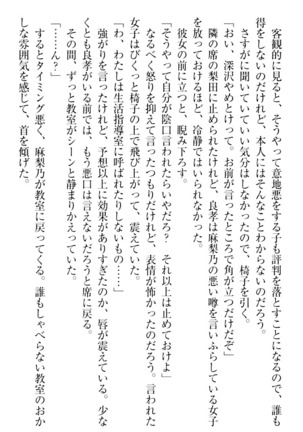 客観的に見ると、そうやって意地悪をする子も評判を落とすことになるので、誰も
得をしないのだけれど、本人にはそんなことわからないのだろう。
さすがに聞いていていい気分はしなかったので、椅子を引く。
「おい、深沢やめとけって。お前が言ったところで角が立つだけだぞ」
隣の席の梨田に止められたけれど、良孝は麻梨乃の悪い噂を言いふらしている女子
を放っておけるほど、冷静ではいられなかった。
彼女の前に立つと、睨み下ろす。
「そうやって自分が陰口言われたらいやだろ？　それ以上は止めておけよ」
なるべく怒りを抑えて言ったつもりだけれど、表情が怖かったのだろう。言われた
女子はびくっと椅子の上で飛び上がって、震えていた。
「わ、わたしは生活指導室に呼ばれたりしないもの……」
強がりを言ったけれど、予想以上に効果がありすぎたのか、唇が震えている。少な
くとも良孝がいる前では、もう悪口は言えないだろうと席に戻る。
その間、ずっと教室がシーンと静まりかえっていた。
「……ん？」
するとタイミング悪く、麻梨乃が教室に戻ってくる。誰もしゃべらない教室のおか
しな雰囲気を感じて、首を傾げた。